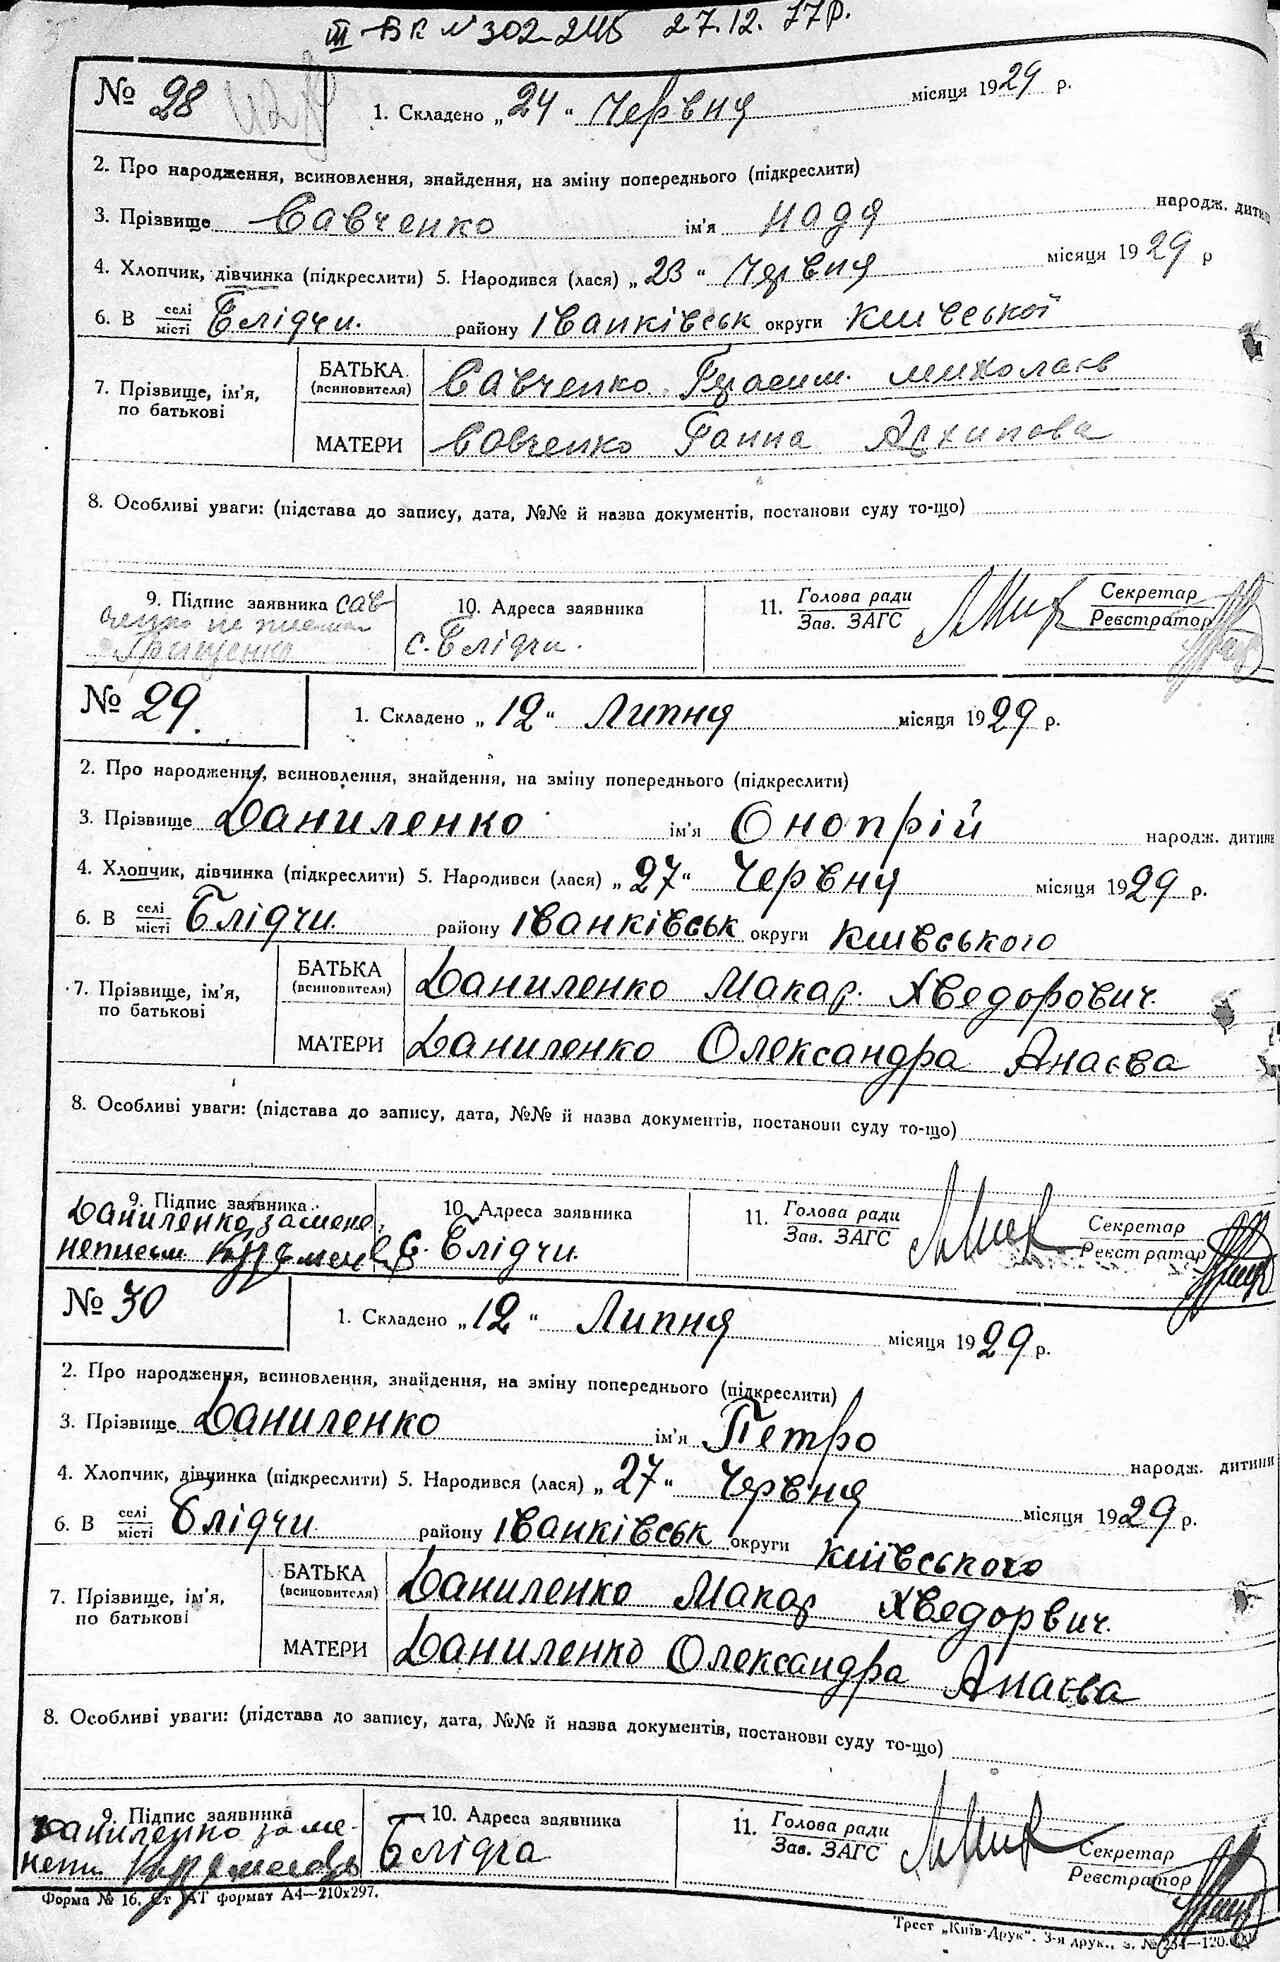 III ВК № 302245 27.12.77р.
№ 28
1. Складено „24“ Червня місяця 1929 р.
2. Про народження, всиновлення, знайдення, на зміну попереднього (підкреслити)
3. Прізвище Савченко ім'я Надя народж. дитини
4. Хлопчик, дівчинка (підкреслити) 5. Народився (лася) „23“ Червня місяця 1929 р
6. В селі місті Блідчи. району Іванківськ округи Київської
7. Прізвище, ім'я, по батькові
БАТЬКА (всиновителя) Савченко Герасим. Миколаєв
МАТЕРИ Савченко Ганна Архипова
8. Особливі уваги: (підстава до запису, дата, №№ й назва документів, постанови суду то-що)
9. Підпис заявника Сав
ченко не письмен
Грищенко
10. Адреса заявника
с. Блідчи.
11. Голова ради
Зав. ЗАГС
Секретар
Реєстратор
№ 29.
1. Складено „12“ Липня місяця 1929 р.
2. Про народження, всиновлення, знайдення, на зміну попереднього (підкреслити)
3. Прізвище Даниленко ім'я Онопрій народж. дитини
4. Хлопчик, дівчинка (підкреслити) 5. Народився (лася) „27“ Червня місяця 1929 р.
6. В селі місті Блідчи. району Іванківськ округи Київського
7. Прізвище, ім'я, по батькові
БАТЬКА (всиновителя) Даниленко Макар. Хведорович.
МАТЕРИ Даниленко Олександра Анаєва
8. Особливі уваги: (підстава до запису, дата, №№ й назва документів, постанови суду то-що)
9. Підпис заявника
Даниленко за
неписьм
10. Адреса заявника
С. Блідчи.
11. Голова ради
Зав. ЗАГС
Секретар
Реєстратор
№ 30
1. Складено „12“ Липня місяця 1929 р.
2. Про народження, всиновлення, знайдення, на зміну попереднього (підкреслити)
3. Прізвище Даниленко ім'я Петро народж. дитини
4. Хлопчик, дівчинка (підкреслити) 5. Народився (лася) „27“ Червня місяця 1929 р.
6. В селі місті Блідчи району Іванківськ округи Київського
7. Прізвище, ім'я, по батькові
БАТЬКА (всиновителя) Даниленко Макар Хведорвич.
МАТЕРИ Даниленко Олександра Анаєва
8. Особливі уваги: (підстава до запису, дата, №№ й назва документів, постанови суду то-що)
9. Підпис заявника
Даниленко за
10. Адреса заявника
Блідча
11. Голова ради
Зав. ЗАГС
Секретар
Реєстратор
Форма № 16. Ст АТ формат А4—210х297.
Трест „Київ-Друк“. 3-я друк., з. № 254—120.